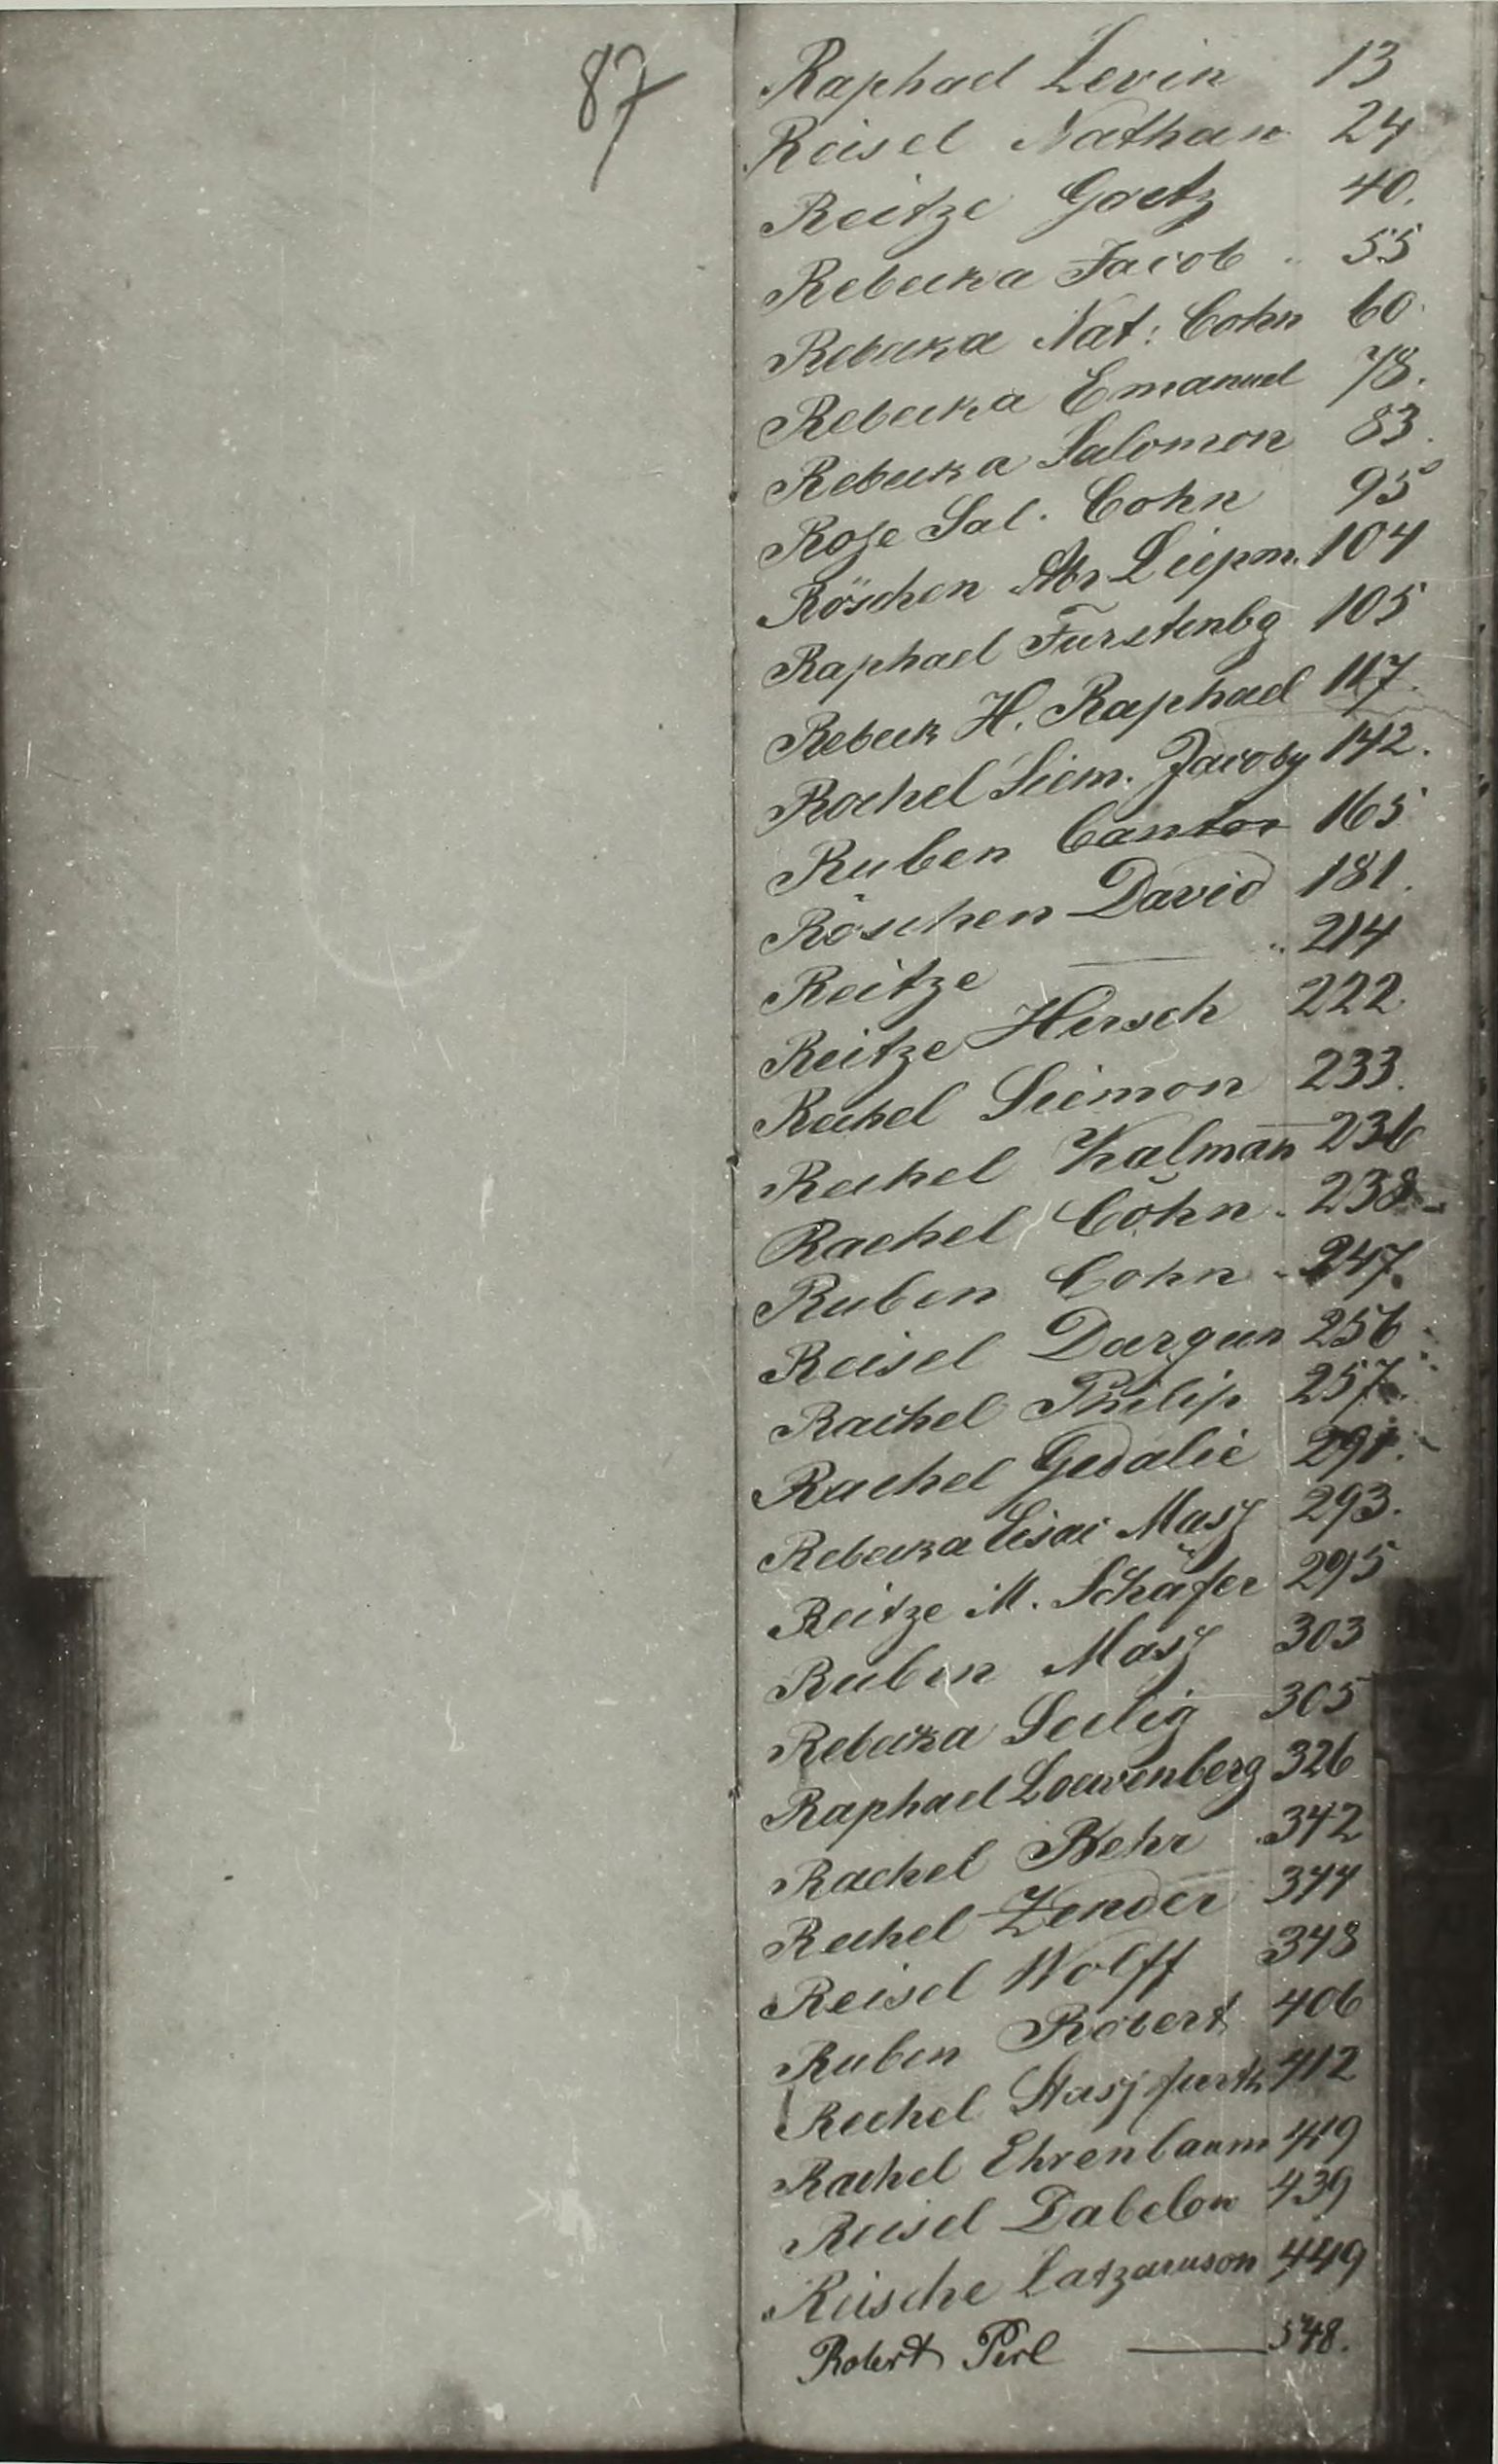 87
Raphael Levin 13
Reisel Nathan 24
Reitze Goetz 40.
Rebecka Jacob 55
Rebecka Nat: Cohn 60
Rebecka Emanuel 78.
Rebecka Salomon 83.
Rose Sal. Cohn 95
Röschen Abr Liepm. 104
Raphael Furstenbg 105
Rebeck H. Raphael 117.
Rachel Siem. Jacoby 142.
Ruben Cantor 165
Röschen David 181.
Reitze — 214
Reitze Hirsch 222.
Rechel Siemon 233.
Rechel Kalman 236
Rachel Cohn 238
Ruben Cohn 247.
Reisel Dargun 256
Rachel Philip 257.
Rachel Gedalie 291.
Rebecka Eisai Mass 293.
Reitze M. Schäfer 295
Ruben Mass 303
Rebecka Seelig 305
Raphael Loewenberg 326
Rachel Behr 342
Rechel Zender 344
Reisel Wolff 348
Ruben Robert 406
Rechel Stassfurth 412
Rachel Ehrenbaum 419
Reisel Dabelow 439
Reische Latzaruson 449
Robert Perl — 548.